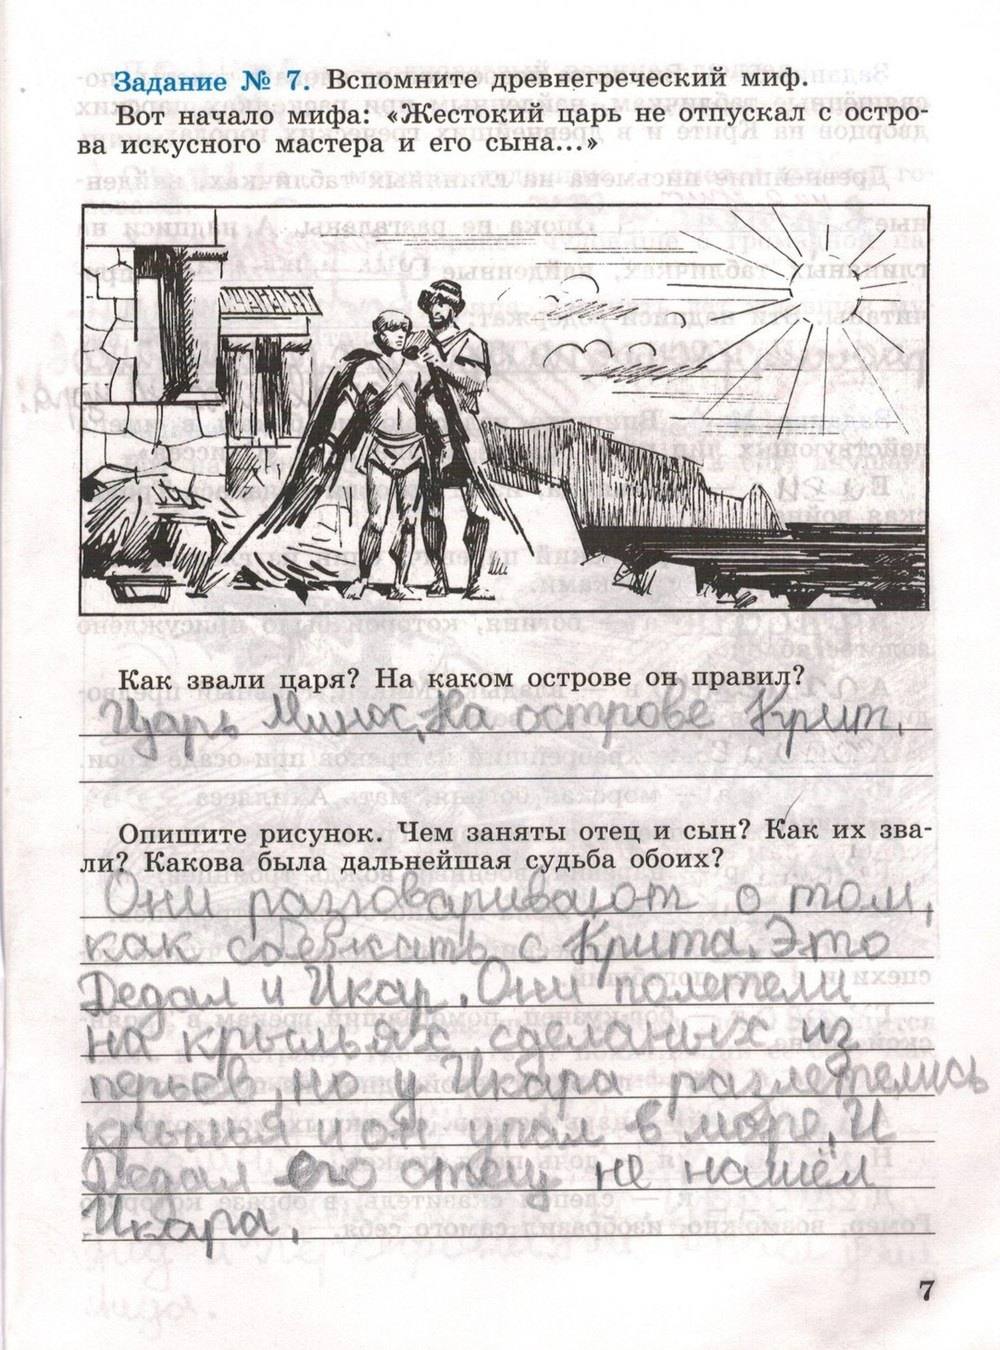 Задание № 7. Вспомните древнегреческий миф.
Вот начало мифа: «Жестокий царь не отпускал с остро-
ва искусного мастера и его сына...»
Как звали царя? На каком острове он правил?
Царь Минос, На острове Крит.
Опишите рисунок. Чем заняты отец и сын? Как их зва-
ли? Какова была дальнейшая судьба обоих?
Они разговаривают о том,
как сбежать с Крита. Это
Дедал и Икар. Они полетели
на крыльях сделаных из
перьев, но у Икара разлетелись
крылья и он упал в море, И
Дедал его отец не нашёл
Икара.
7